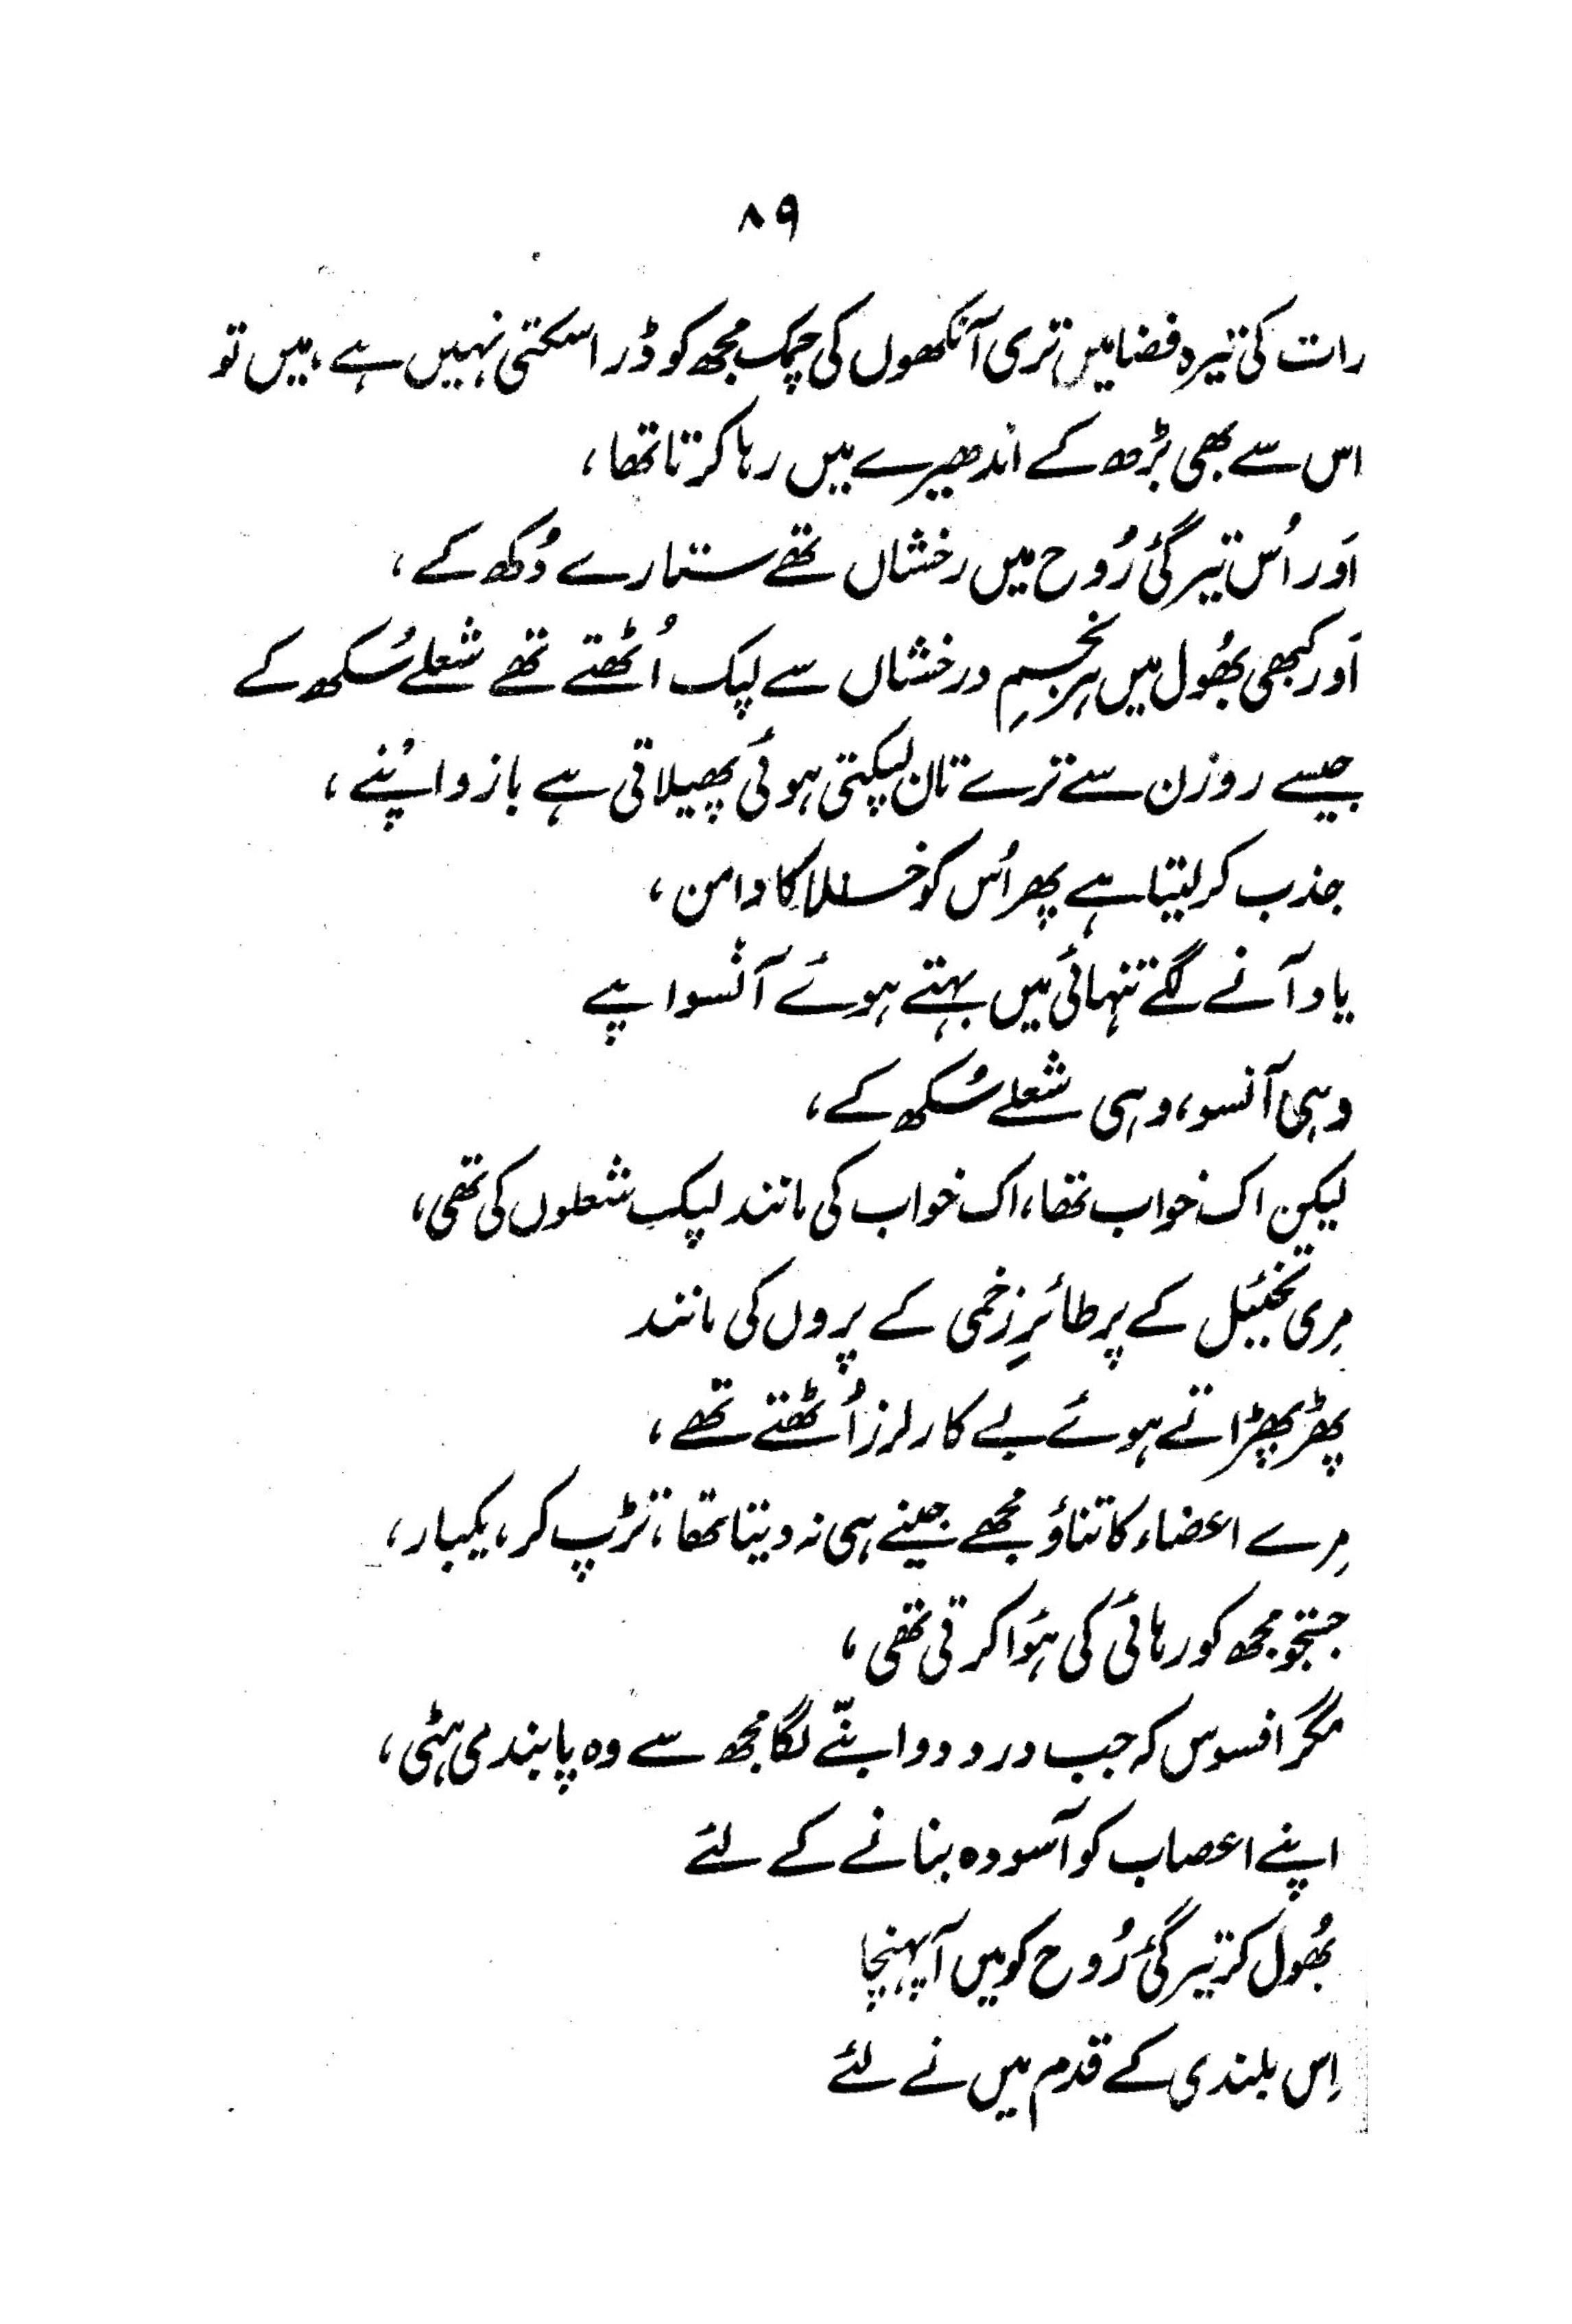 ۸۹
رات کی تیرہ فضا میں تری آنکھوں کی چمک مجھ کو ڈرا سکتی نہیں ہے، میں تو
اس سے بھی بڑھ کے اندھیرے میں رہا کرتا تھا،
اَور اُس تیرگیٔ رُوح میں رخشاں تھے ستارے دُکھ کے،
اَور کبھی بھُول میں ہر نجمِ درخشاں سے لپک اُٹھتے تھے شعلے سُکھ کے
جیسے روزن سے ترے تان لپکتی ہوئی پھیلاتی ہے بازو اپنے،
جذب کر لیتا ہے پھر اُس کو خلا کا دامن،
یاد آنے لگے تنہائی میں بہتے ہوئے آنسو اپنے
وہی آنسو، وہی شعلے سُکھ کے،
لیکن اک خواب تھا، اک خواب کی مانند لپک شعلوں کی تھی،
مِری تخئیل کے پر طائرِ زخمی کے پروں کی مانند
پھڑپھڑاتے ہوئے بے کار لرز اُٹھتے تھے،
مِرے اعضاء کا تناؤ مجھے جینے ہی نہ دیتا تھا، تڑپ کر، یکبار،
جستجو مجھ کو رہائی کی ہؤا کرتی تھی،
مگر افسوس کہ جب درد دوا بننے لگا مجھ سے وہ پابندی ہٹی،
اپنے اعصاب کو آسودہ بنانے کے لئے
بھُول کر تیرگیٔ رُوح کو میں آ پہنچا
اِس بلندی کے قدم میں نے لئے